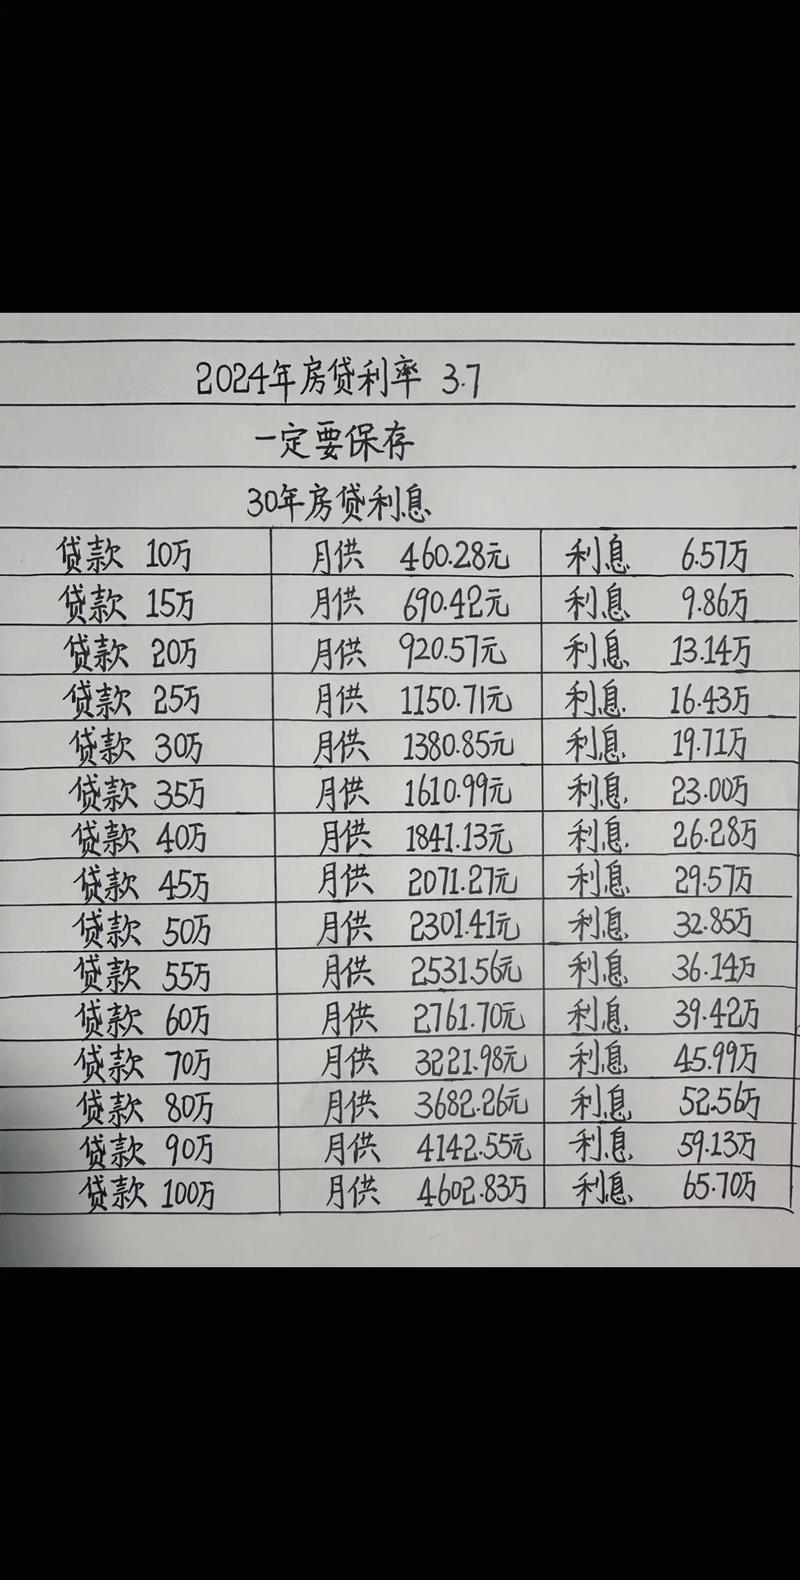 2024年房贷利率 3.7
一定要保存
30年房贷利息
贷款 10万 月供 460.28元 利息 6.57万
贷款 15万 月供 690.42元 利息 9.86万
贷款 20万 月供 920.57元 利息 13.14万
贷款 25万 月供 1150.71元 利息 16.43万
贷款 30万 月供 1380.85元 利息 19.71万
贷款 35万 月供 1610.99元 利息 23.00万
贷款 40万 月供 1841.13元 利息 26.28万
贷款 45万 月供 2071.27元 利息 29.57万
贷款 50万 月供 2301.41元 利息 32.85万
贷款 55万 月供 2531.56元 利息 36.14万
贷款 60万 月供 2761.70元 利息 39.42万
贷款 70万 月供 3221.98元 利息 45.99万
贷款 80万 月供 3682.26元 利息 52.56万
贷款 90万 月供 4142.55元 利息 59.13万
贷款 100万 月供 4602.83万 利息 65.70万